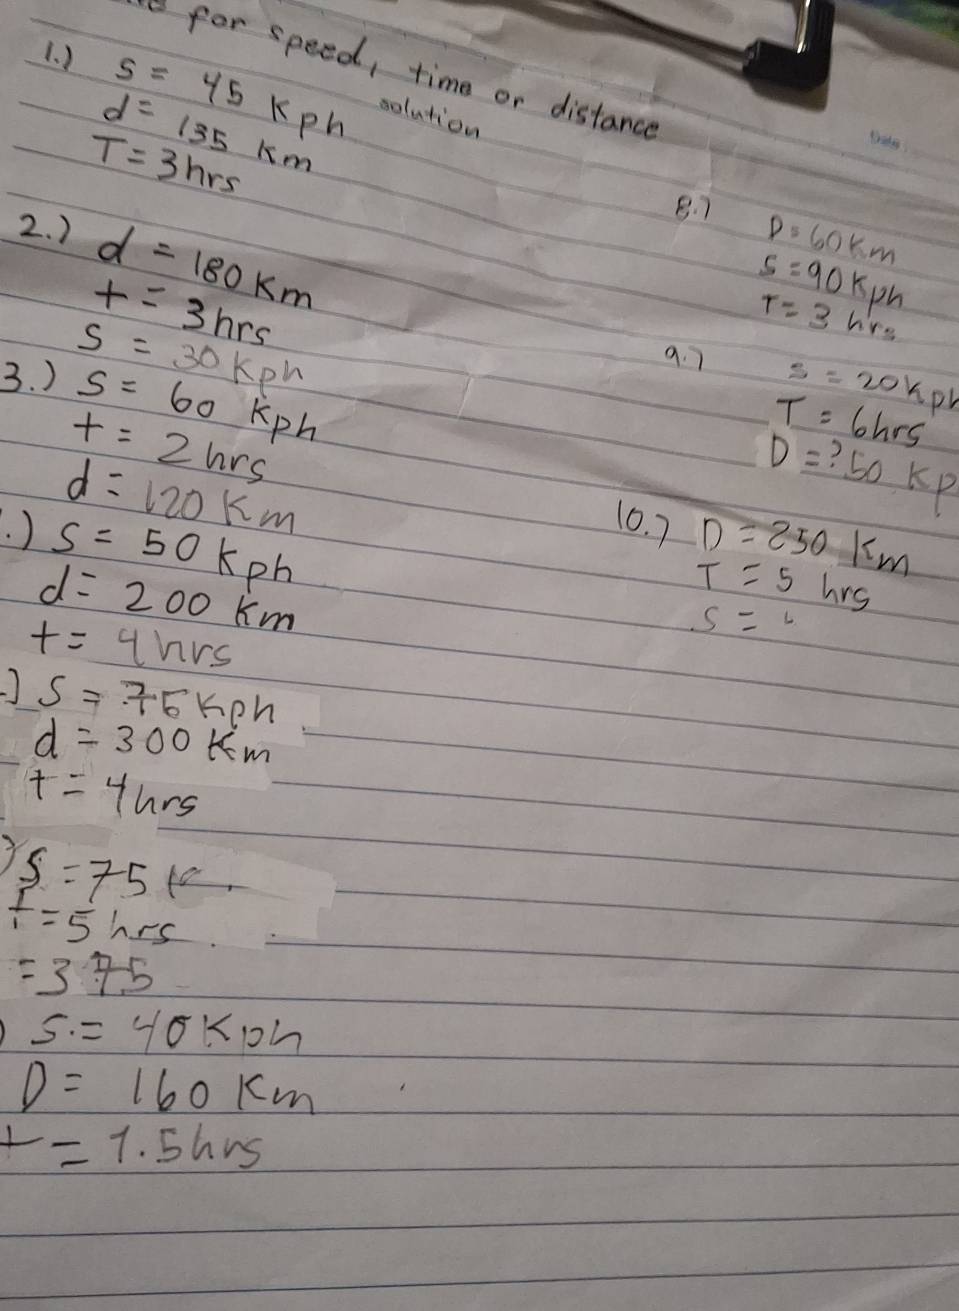 for speed, time or distance
solution
1.) S = 45 Kph
d = 135 Km
T = 3 hrs
2.) d = 180 Km
t = 3 hrs
S = 30 Kph
3.) S = 60 Kph
t = 2 hrs
d = 120 Km
.) S = 50 Kph
d = 200 Km
t = 4 hrs
.) S = 75 Kph
d = 300 Km
t = 4 hrs
) S = 75
T = 5 hrs
= 375
) S. = 40 Kph
D = 160 Km
t = 1.5 hrs
Date
8.) D = 60 Km
S = 90 Kph
T = 3 hrs
9.) S = 20 Kph
T = 6 hrs
D = ? 50 Kp
10.) D = 250 Km
T = 5 hrs
S =